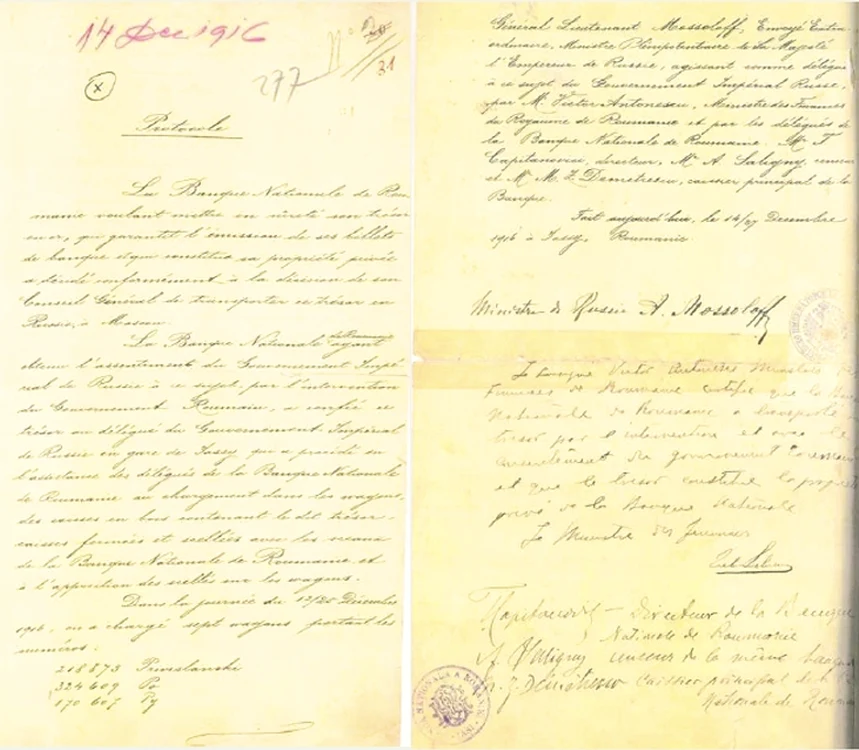 14 Dec 1916
277
31
Protocole
La Banque Nationale de Rou-
manie voulant mettre en sûreté son trésor
en or, qui garantit l'émission de ses billets
de banque et qui constitue sa propriété privée
a décidé conformément à la décision de son
Conseil Général de transporter ce trésor en
Russie, à Moscou.
La Banque Nationale de Roumanie ayant
obtenu l'assentiment du Gouvernement Impé-
rial de Russie à ce sujet, par l'intervention
du Gouvernement Roumain, a confié ce
trésor au délégué du Gouvernement Impérial
de Russie en gare de Jassy, qui a procédé en
l'assistance des délégués de la Banque Nationale
de Roumanie au chargement dans les wagons,
des caisses en bois contenant le dit trésor -
caisses fermées et scellées avec les sceaux
de la Banque Nationale de Roumanie et
à l'apposition des scellés sur les wagons.
Dans la journée du 12/25 Décembre
1916, on a chargé sept wagons portant les
numéros:
218873
324609
170607
Général Lieutenant Mossoloff, Envoyé Extra-
ordinaire, Ministre Plénipotentiaire de Sa Majesté
l'Empereur de Russie, agissant comme délégué
à ce sujet du Gouvernement Impérial Russe,
par M. Victor Antonescu, Ministre des Finances
du Royaume de Roumanie et par les délégués de
la Banque Nationale de Roumanie. Mr T
Capitanovici, directeur, Mr A Saligny, censeur
et Mr M. Z. Demetrescu, caissier principal de la
Banque.
Fait aujourd'hui, le 14/27 Decembre
1916 à Jassy, Roumanie.
Ministre de Russie A. Mossoloff
Victor Antonescu Ministre
Finances de Roumanie certifie que la
Nationale de Roumanie a transporté
trésor par l'intervention et avec le
du gouvernement
et que le trésor constitue la
privé de la Banque Nationale
Le Ministre des Finances
Directeur de la Banque
Nationale de Roumanie
A. Saligny censeur de la même banque
Caissier principal de la
Nationale de